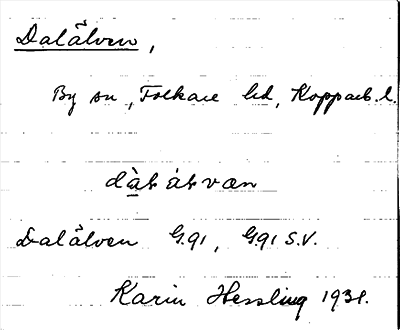 Dalälven,
By sn, Folkare hd, Kopparb. l.
dàt át væn
Dalälven G.91, G.91 S.V.
Karin Hessling 1931.